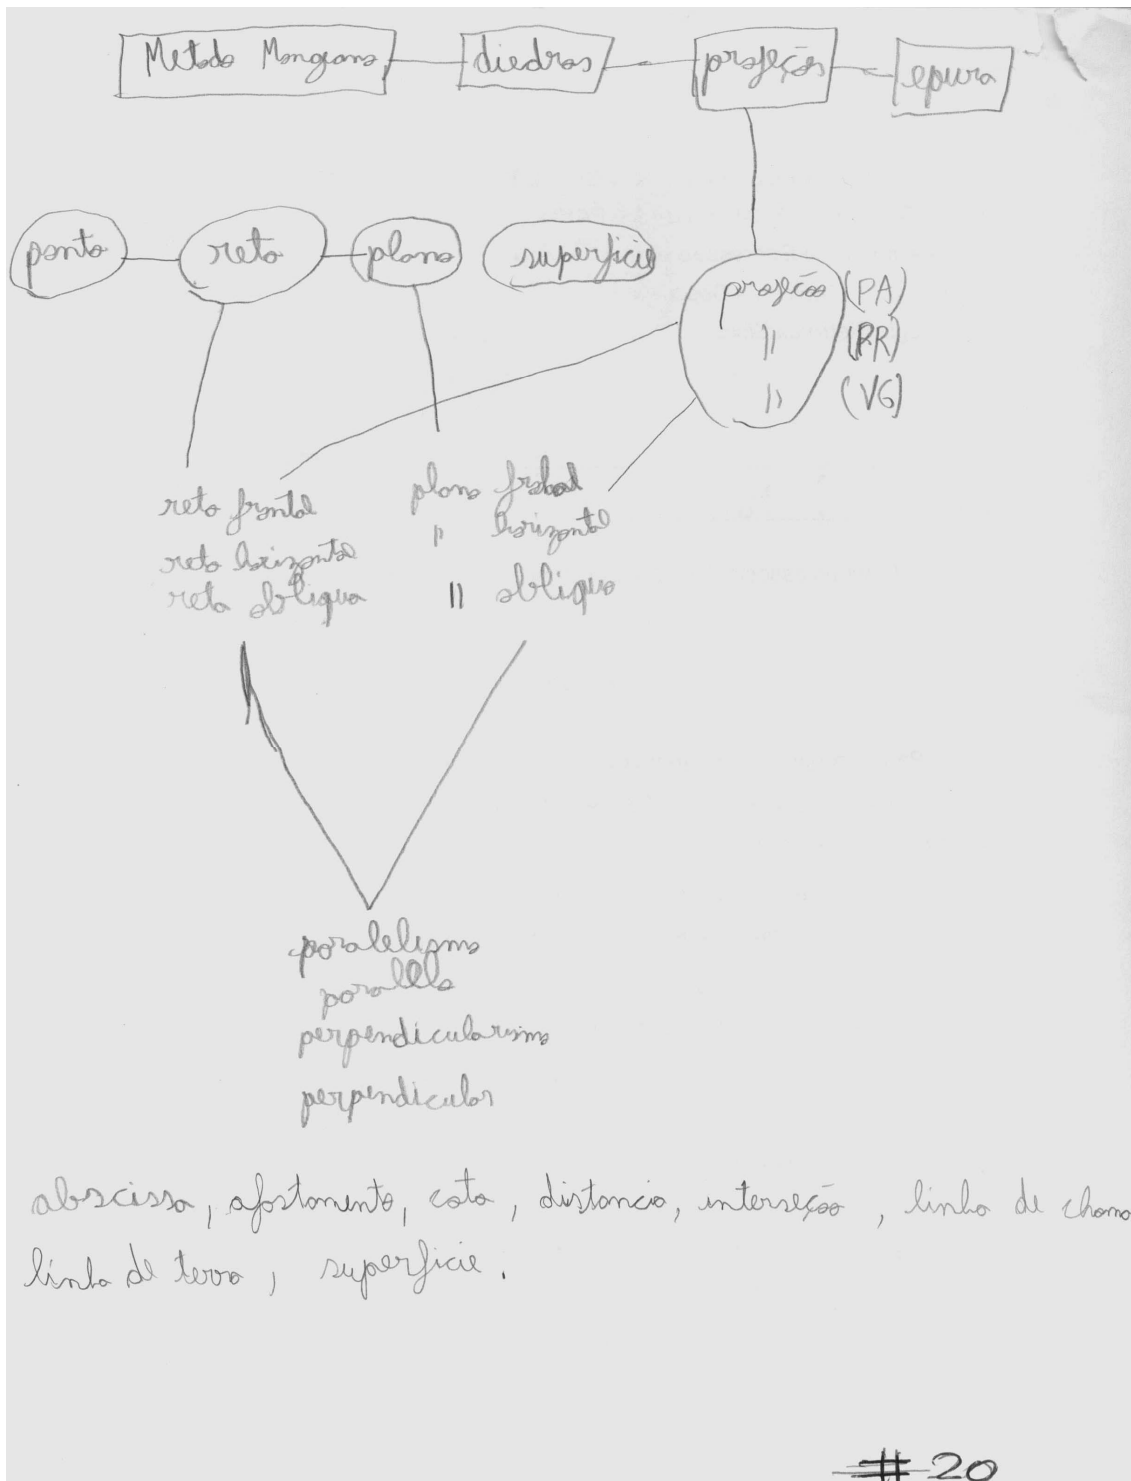 Metodo Mongeano diedros projeção epura
ponto reta plano superficie
projeção (PA)
" (PR)
" (VG)
reta frontal
reta horizontal
reta obliqua
plano frontal
" horizontal
" obliquo
paralelismo
paralela
perpendicularismo
perpendicular
abscissa, afastamento, cota, distancia, interseção, linha de chama
linha de terra, superficie.
# 20